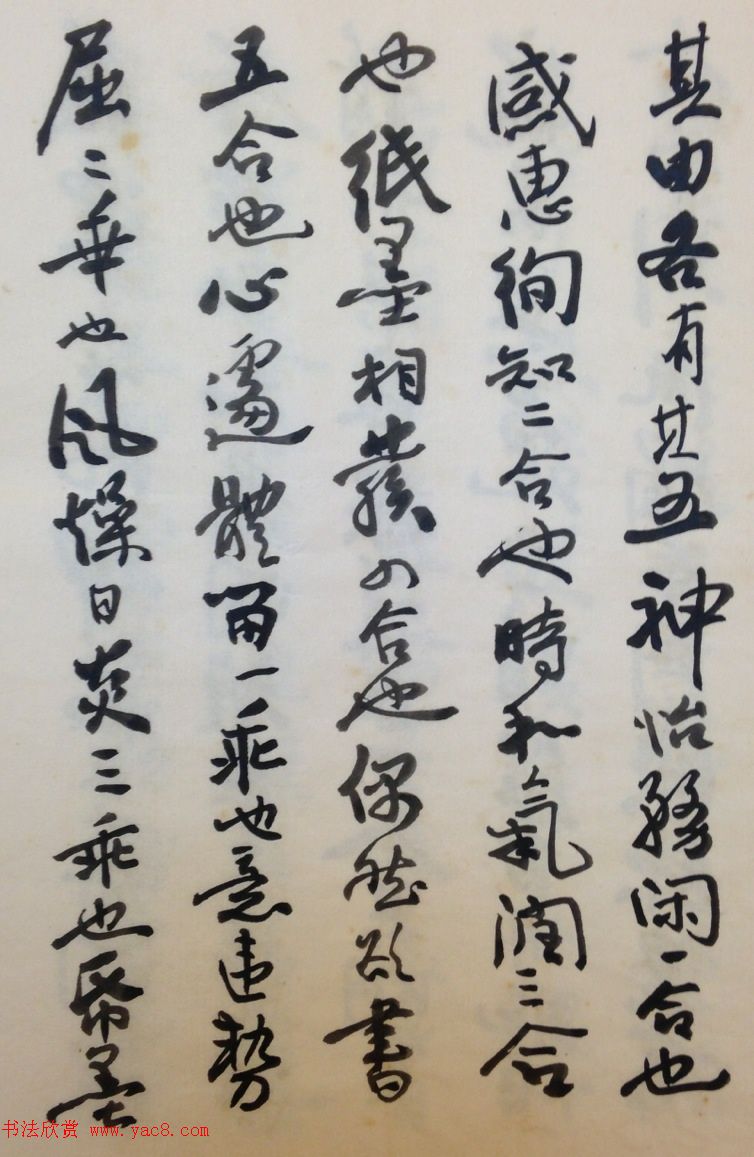 其由各有其五神怡務闲一合也
感惠徇知二合也時和氣潤三合
也紙墨相發四合也偶然欲書
五合也心遽體留一乖也意違勢
屈二乖也風燥日炎三乖也帋墨
书法欣赏 www.yac8.com